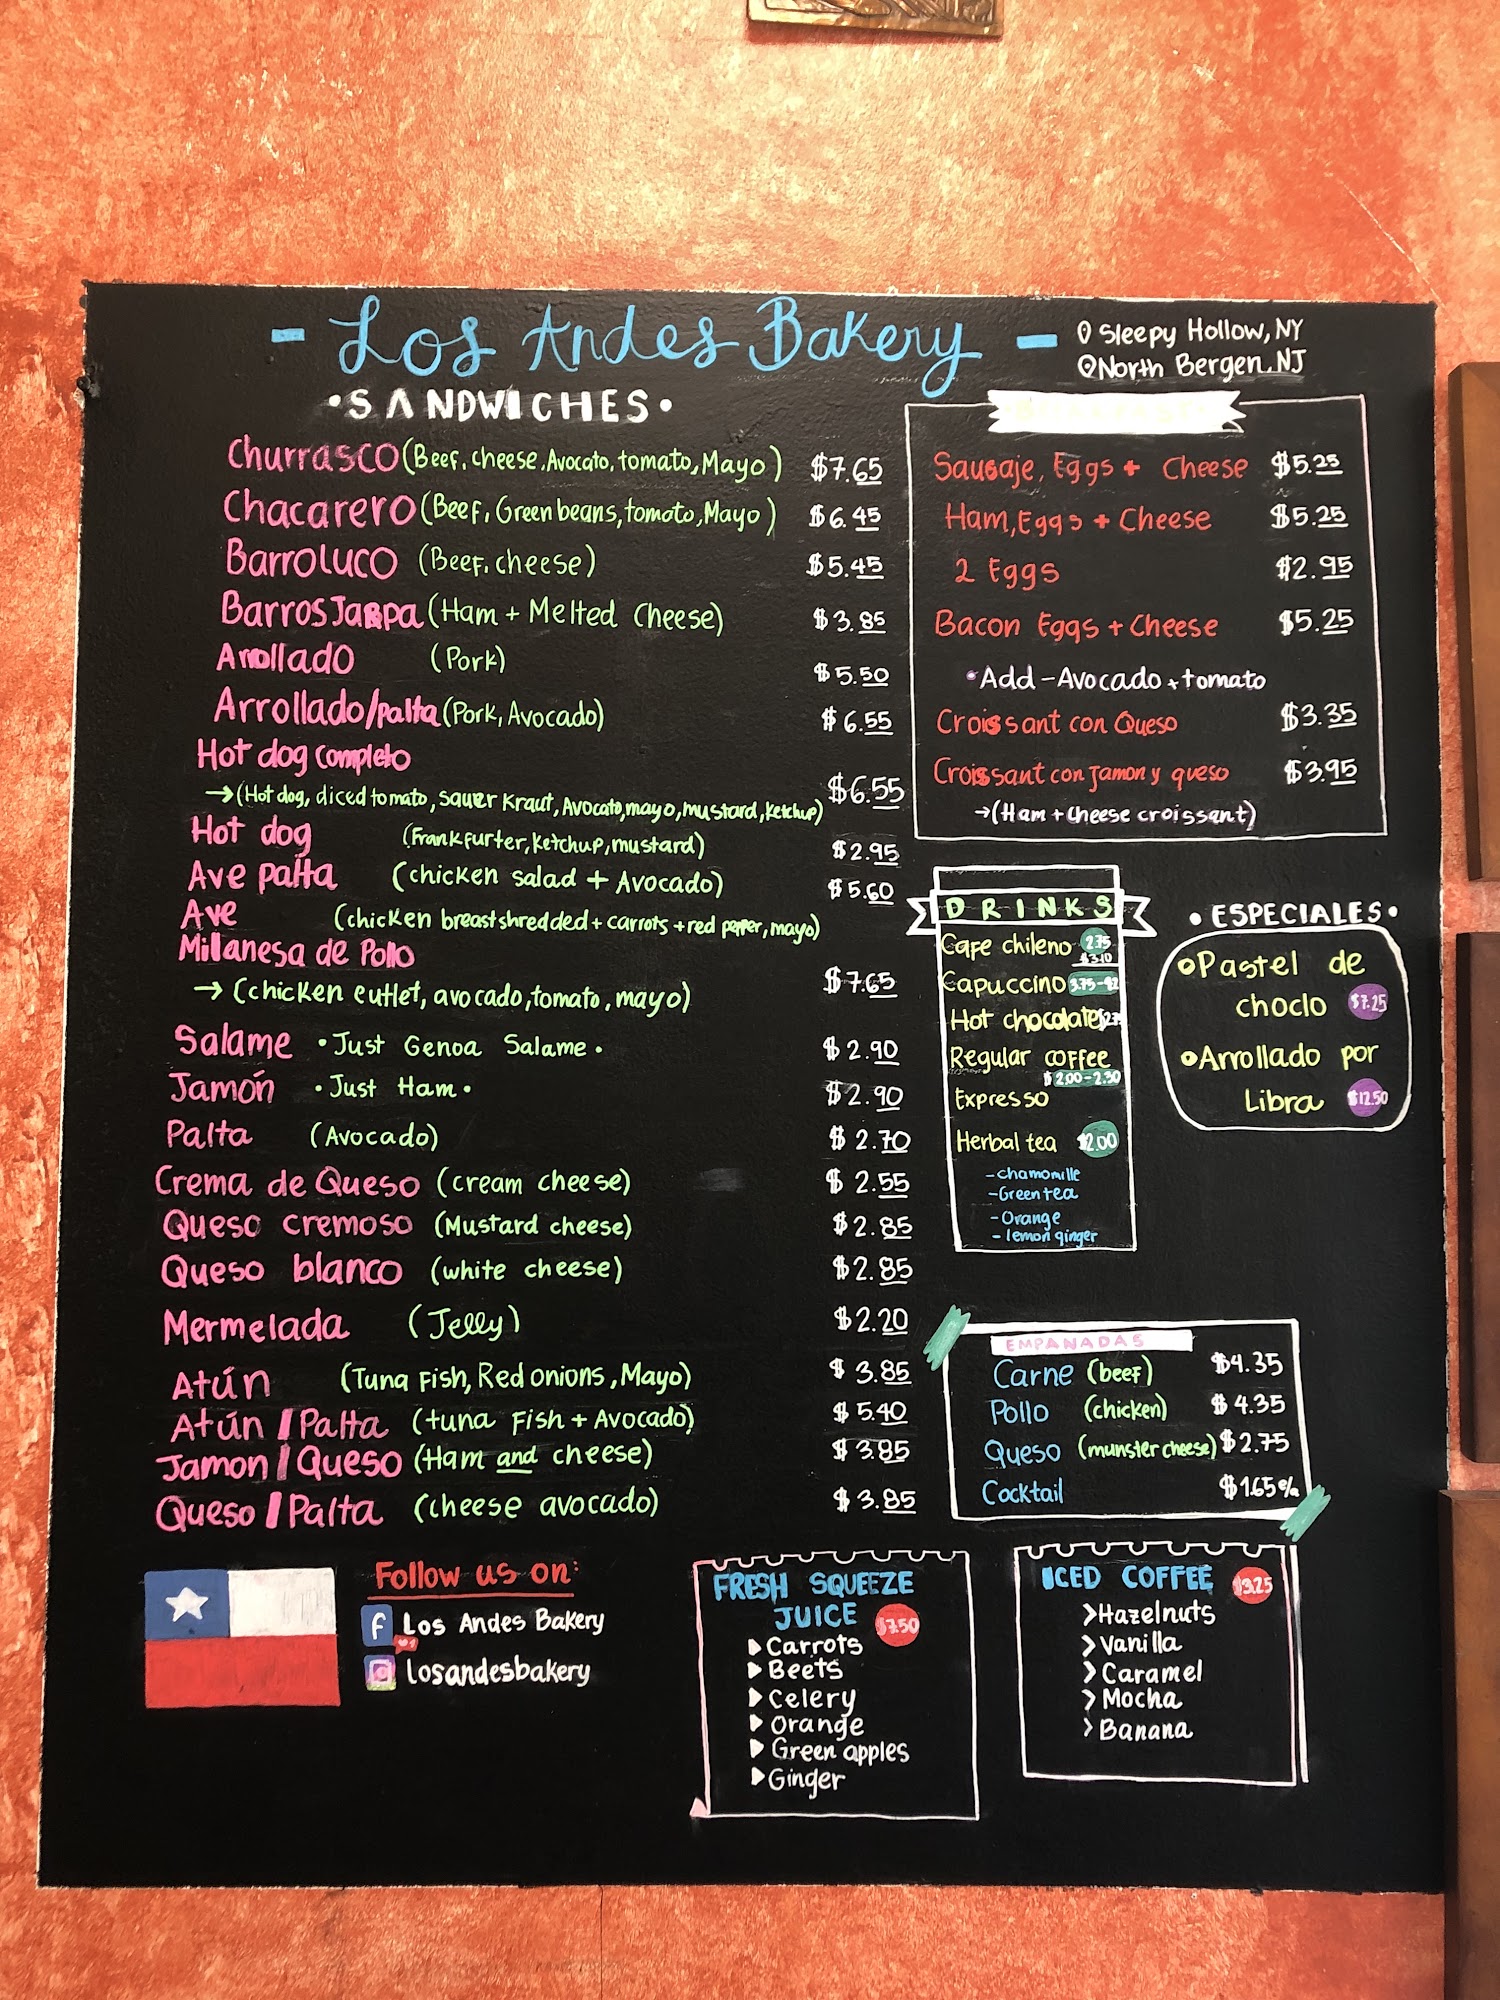 - Los Andes Bakery -
Sleepy Hollow, NY
North Bergen, NJ
•SANDWICHES•
Churrasco (Beef, cheese, Avocato, tomato, Mayo) $7.65
Chacarero (Beef, Green beans, tomato, Mayo) $6.45
Barroluco (Beef, cheese) $5.45
Barros Jarpa (Ham + Melted Cheese) $3.85
Arrollado (Pork) $5.50
Arrollado/palta (Pork, Avocado) $6.55
Hot dog completo
→(Hot dog, diced tomato, sauer kraut, Avocato, mayo, mustard, ketchup) $6.55
Hot dog (Frankfurter, ketchup, mustard) $2.95
Ave palta (chicken salad + Avocado) $5.60
Ave (chicken breast shredded + carrots + red pepper, mayo)
Millanesa de Pollo
→ (chicken cutlet, avocado, tomato, mayo) $7.65
Salame •Just Genoa Salame• $2.90
Jamón •Just Ham• $2.90
Palta (Avocado) $2.70
Crema de Queso (cream cheese) $2.55
Queso cremoso (Mustard cheese) $2.85
Queso blanco (white cheese) $2.85
Mermelada (Jelly) $2.20
Atún (Tuna Fish, Red onions, Mayo) $3.85
Atún/Palta (tuna Fish + Avocado) $5.40
Jamon/Queso (Ham and cheese) $3.85
Queso/Palta (cheese avocado) $3.85
Sausaje, Eggs + Cheese $5.25
Ham, Eggs + Cheese $5.25
2 Eggs $2.95
Bacon Eggs + Cheese $5.25
•Add - Avocado + tomato
Croissant con Queso $3.35
Croissant con Jamon y queso $3.95
→(Ham + cheese croissant)
DRINKS
Cafe chileno 2.75
$3.10
Capuccino
Hot chocolate
Regular coffee
$2.00-2.30
Expresso
Herbal tea $2.00
-chamomille
-Green tea
-Orange
-lemon ginger
•ESPECIALES•
Pastel de
choclo $7.25
Arrollado por
Libra $12.50
EMPANADAS
Carne (beef) $4.35
Pollo (chicken) $4.35
Queso (munster cheese) $2.75
Cocktail $1.65 c/u
Follow us on:
f Los Andes Bakery
losandesbakery
FRESH SQUEEZE
JUICE $7.50
Carrots
Beets
Celery
Orange
Green apples
Ginger
ICED COFFEE $3.25
>Hazelnuts
>Vanilla
>Caramel
>Mocha
>Banana